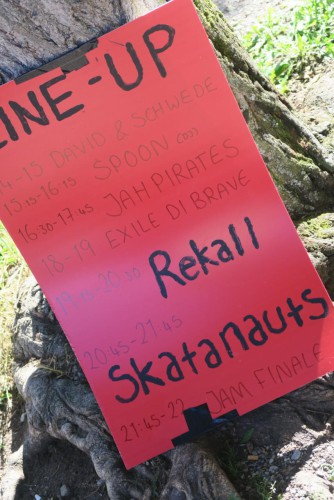 LINE-UP
14-15 DAVID & SCHWEDE
15:15-16:15 SPOON
16:30-17:45 JAH PIRATES
18-19 EXILE DI BRAVE
20:30 Rekall
20:45-21:45 Skatanauts
21:45-22 JAM FINALE